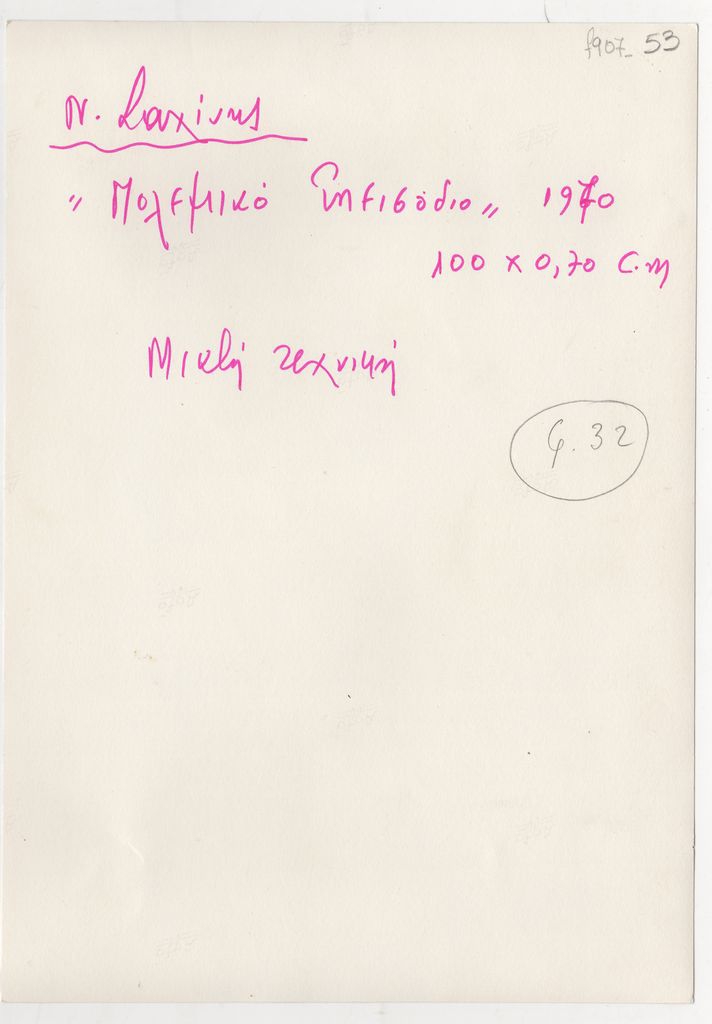 f907_ 53
Ν. Σαχίνης
" Πολεμικό Επεισόδιο " 1970
100 x 0,70 c.m
Μικτή τεχνική
32